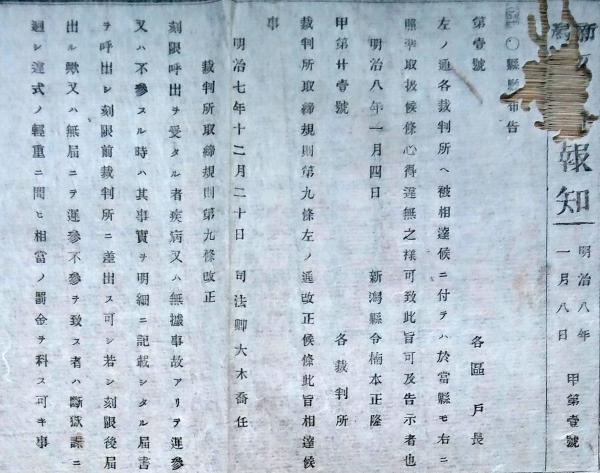 新潟 報知
明治八年
一月八日
甲第壹號
○縣廳布告
第壹號
各區戸長
左ノ通各裁判所ヘ被相達候ニ付テハ於當縣モ右ニ
照準取扱候條心得違無之樣可致此旨可及告示者也
明治八年一月四日
新潟縣令楠本正隆
甲第廿壹號
各裁判所
裁判所取締規則第九條左ノ通改正候條此旨相達候
事
明治七年十二月二十日 司法卿大木喬任
裁判所取締規則第九條改正
刻限呼出ヲ受タル者疾病又ハ無據事故アリテ遲參
又ハ不參スル時ハ其事實ヲ明細ニ記載シタル屆書
ヲ呼出シ刻限前裁判所ニ差出ス可シ若シ刻限後屆
出ル歟又ハ無屆ニテ遲參不參ヲ致ス者ハ斷獄課ニ
廻シ違式ノ輕重ニ問ヒ相當ノ罰金ヲ科ス可キ事